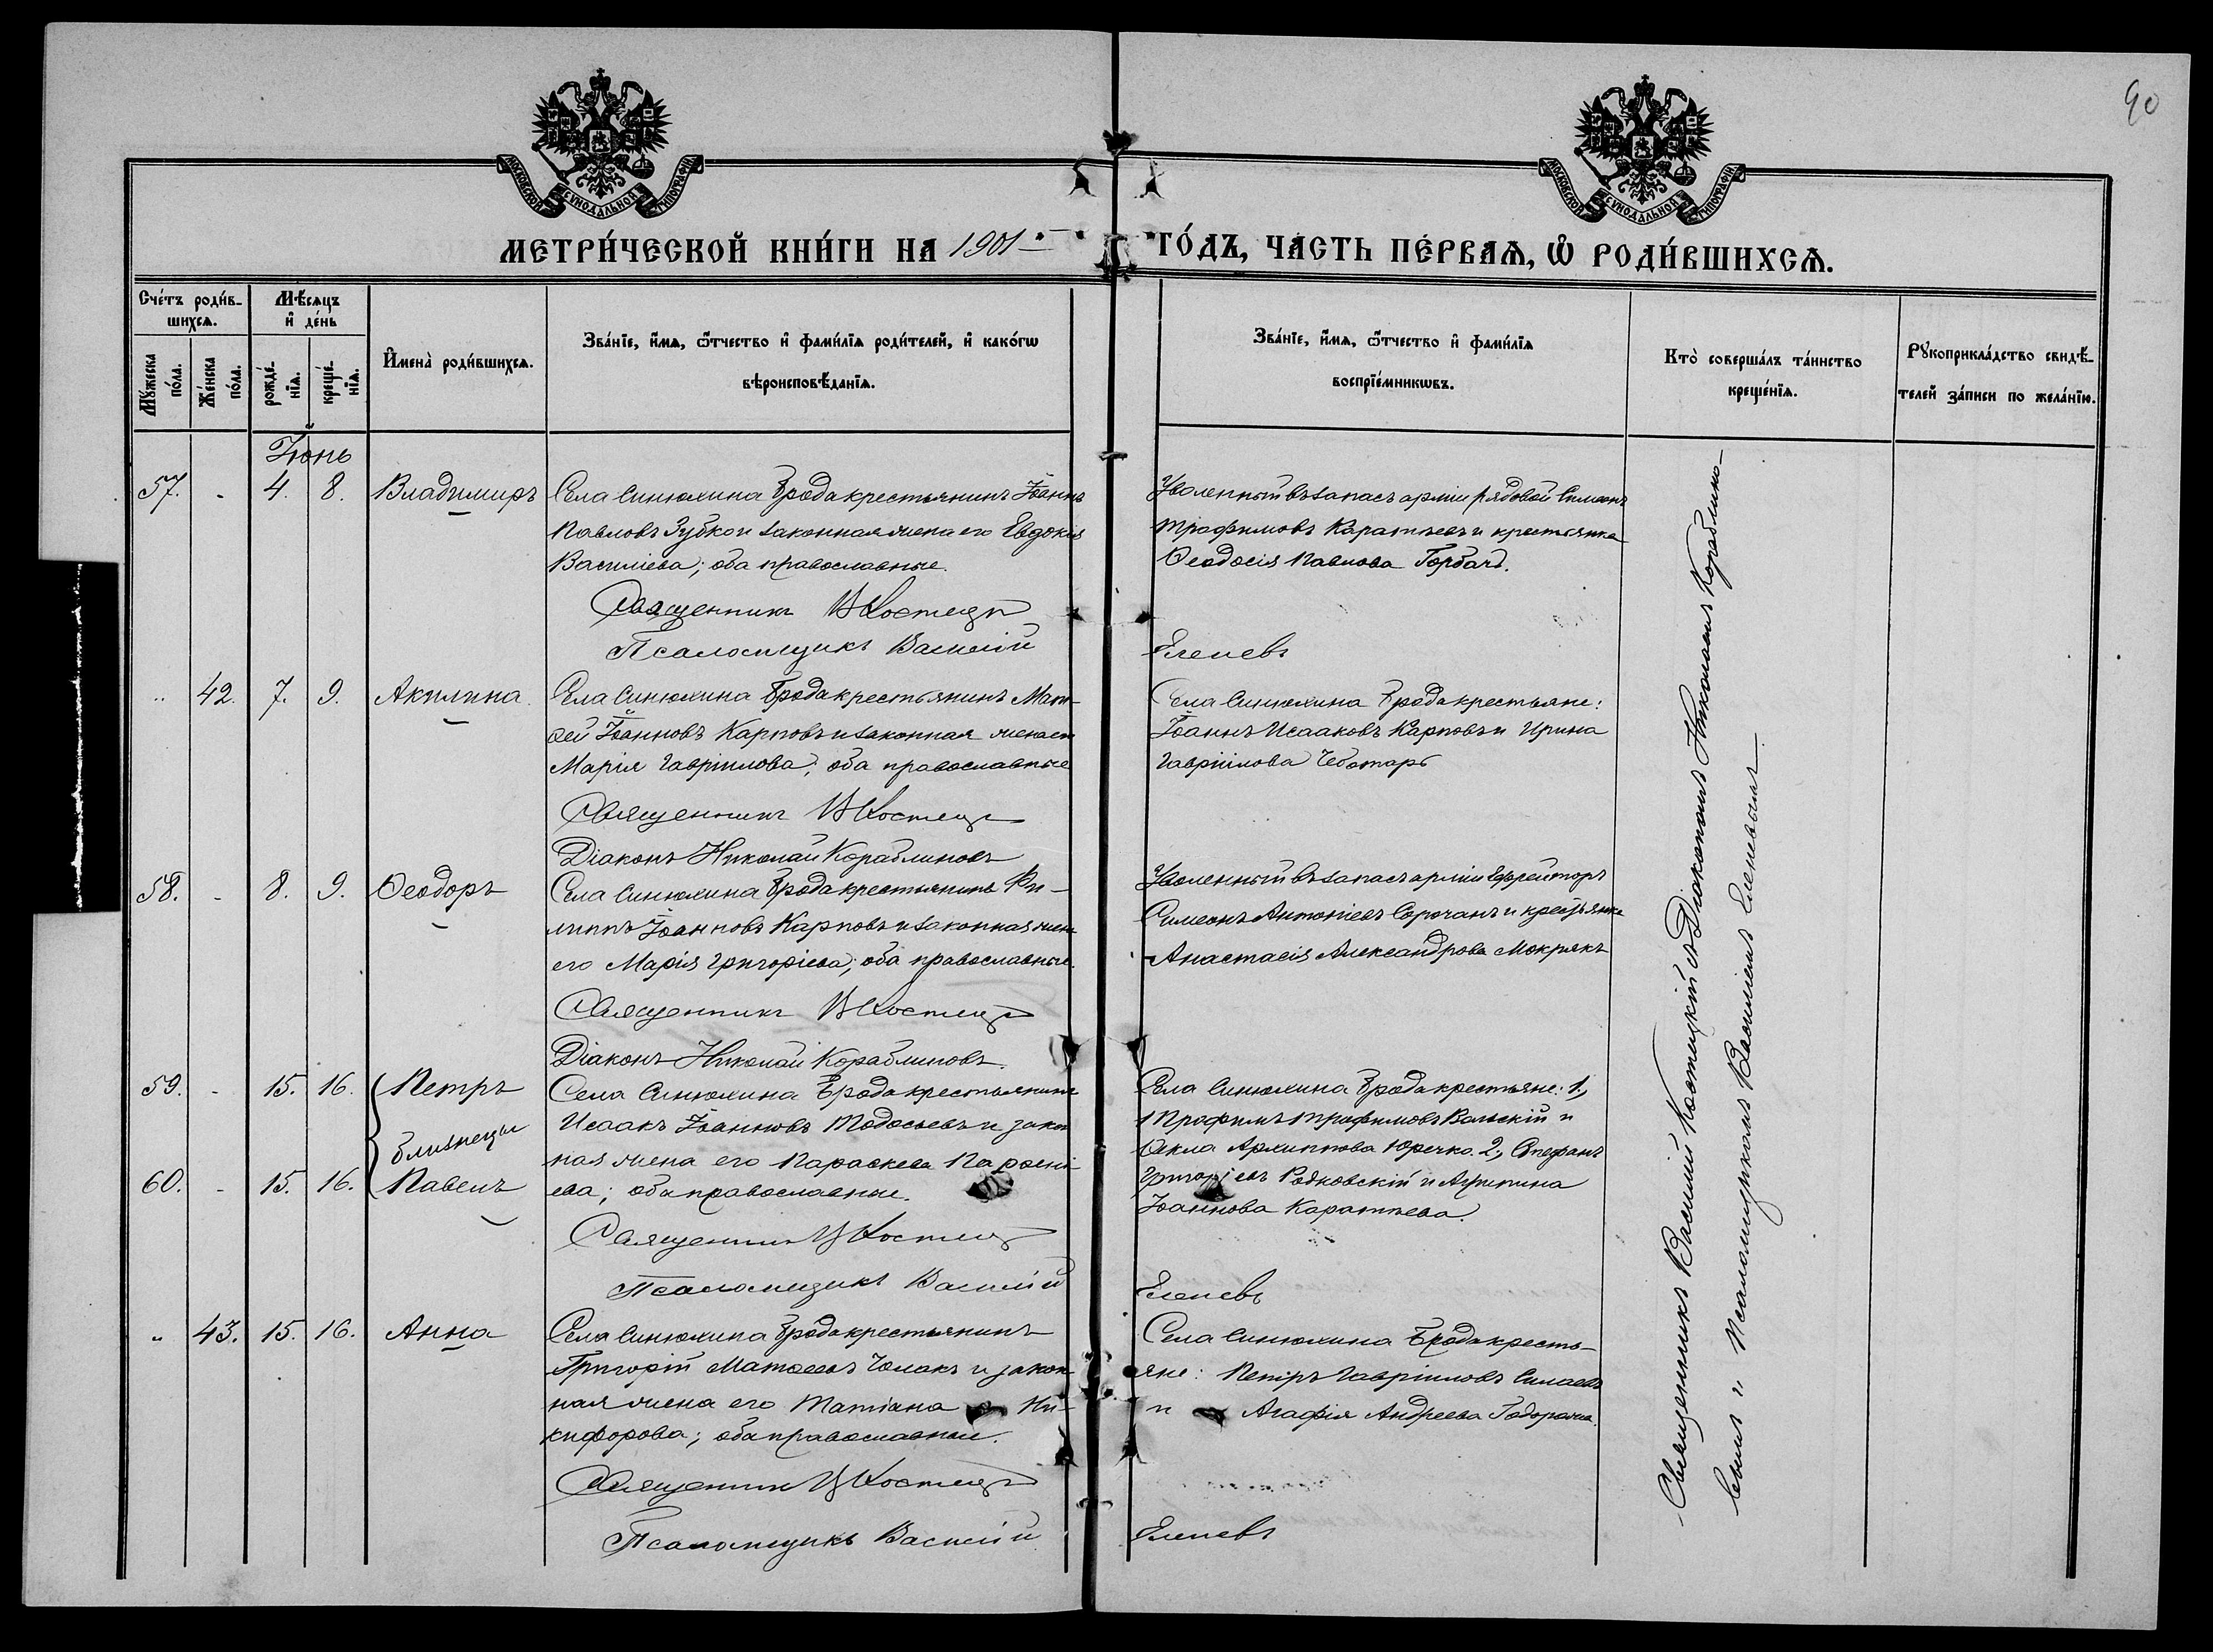 90
МОСКОВСКОЙ СѴНОДАЛЬНОЙ ТИПОГРАФІИ
МОСКОВСКОЙ СѴНОДАЛЬНОЙ ТИПОГРАФІИ
МЕТРИ́ЧЕСКОЙ КНИ́ГИ НА 1901 ГО́ДЪ, ЧА́СТЬ ПЕ́РВАѦ, Ѽ РОДИ́ВШИХСѦ.
Сче́тъ роди́в-
шихсѧ.
Мѣ́сѧцъ
и҆ де́нь
Му́жеска по́ла.
Же́нска по́ла.
рожде́нїѧ.
креще́нїѧ.
И҆мена̀ роди́вшихсѧ.
Зва́нїе, и҆́мѧ, ѻ҆́тчество и҆ фами́лїѧ роди́телей, и҆ како́гѡ
вѣроисповѣ́данїѧ.
Зва́нїе, и҆́мѧ, ѻ҆́тчество и҆ фами́лїѧ
воспрїе́мникѡвъ.
Кто̀ соверша́лъ та́инство
креще́нїѧ.
Рꙋкоприкла́дство свидѣ́-
телей за́писи по жела́нїю.
Іюнь
57. - 4. 8. Владимиръ
Села Синюхина Брода крестьянинъ Іоаннъ
Павловъ Зубко и законная жена его Евдокія
Василіева; оба православные.
Священникъ В Костецк
Псаломщикъ Василій Еленевъ
Уволенный въ запасъ арміи рядовой Симеонъ
Трофимовъ Каратѣевъ и крестьянка
Ѳеодосія Павлова Горбачъ.
" 42. 7. 9. Акилина.
Села Синюхина Брода крестьянинъ Мат-
ѳей Іоанновъ Карповъ и законная жена его
Марія Гавріилова; оба православные
Священникъ В Костецк
Діаконъ Николай Кораблиновъ
Села Синюхина Брода крестьяне:
Іоаннъ Исааковъ Карповъ и Ирина
Гавріилова Чеботарь
58. - 8. 9. Ѳеодоръ
Села Синюхина Брода крестьянинъ Фи-
липпъ Іоанновъ Карповъ и законная жена
его Марія Григоріева; оба православные.
Священникъ В Костецк
Діаконъ Николай Кораблиновъ.
Уволенный въ запасъ арміи Ефрейторъ
Симеонъ Антоніевъ Сорочанъ и крестьянка
Анастасія Александрова Мокрякъ
59. - 15. 16. Петръ
близнецы
60. - 15. 16. Павелъ
Села Синюхина Брода крестьянинъ
Исаакъ Іоанновъ Тодосьевъ и закон
ная жена его Параскева
ева; оба православные.
Священникъ В Костец
Псаломщикъ Василій Еленевъ
Села Синюхина Брода крестьяне: 1.,
Трофимъ Трофимовъ Вальскій и
Ѳекла Архиппова Юречко. 2., Стефанъ
Григоріевъ Родковскій и Агрипина
Іоаннова Каратѣева.
" 43. 15. 16. Анна
Села Синюхина Брода крестьянинъ
Григорій Матѳеевъ Чолакъ и закон
ная жена его Татіана Ни-
кифорова; оба православные.
Священникъ В Костецк
Псаломщикъ Василій Еленевъ
Села Синюхина Брода кресть-
яне: Петръ Гавріиловъ Симаевъ
и Агафія Андреева
Священникъ Василій Костецкій съ Діакономъ Николаемъ Кораблино-
вымъ и Псаломщикомъ Василіемъ Еленевымъ